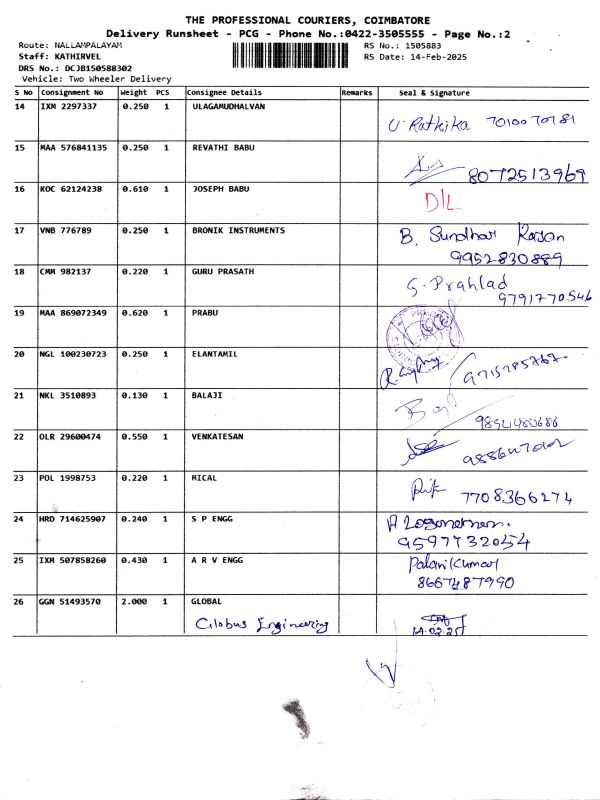 THE PROFESSIONAL COURIERS, COIMBATORE
Delivery Runsheet - PCG - Phone No.:0422-3505555 - Page No.:2
Route: NALLAMPALAYAM RS No.: 1505883
Staff: KATHIRVEL RS Date: 14-Feb-2025
DRS No.: DCJB150588302
Vehicle: Two Wheeler Delivery
S No Consignment No Weight PCS Consignee Details Remarks Seal & Signature
14 IXM 2297337 0.250 1 ULAGAMUDHALVAN
U. Rathika 7010070781
15 MAA 576841135 0.250 1 REVATHI BABU
8072513969
16 KOC 62124238 0.610 1 JOSEPH BABU
D/L
17 VNB 776789 0.250 1 BRONIK INSTRUMENTS
B. Sundhar Rajan
9952830889
18 CMM 982137 0.220 1 GURU PRASATH
G. Prahlad
9791770546
19 MAA 869072349 0.620 1 PRABU
20 NGL 100230723 0.250 1 ELANTAMIL
9715285767
21 NKL 3510893 0.130 1 BALAJI
22 OLR 29600474 0.550 1 VENKATESAN
23 POL 1998753 0.220 1 MICAL
7708366274
24 HRD 714625907 0.240 1 S P ENGG
9597732054
25 IXM 507858260 0.430 1 A R V ENGG
Palanikumar
8667487990
26 GGN 51493570 2.000 1 GLOBAL
Globus Engineering
14.02.25